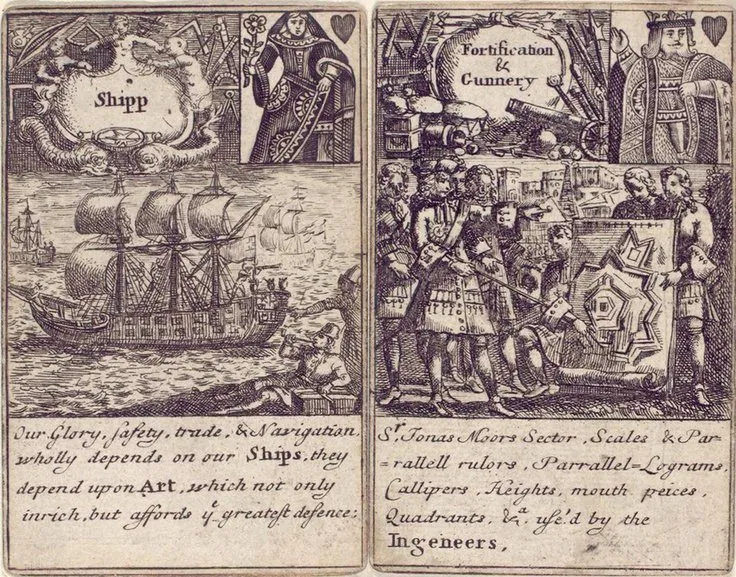 Shipp
Our Glory, safety, trade, & Navigation,
wholly depends on our Ships, they
depend upon Art, which not only
inrich, but affords yͤ greatest defence:
Fortification
&
Gunnery
Sʳ. Jonas Moors Sector, Scales & Par-
=rallell rulors, Parrallel=Lograms,
Callipers, Heights, mouth peices,
Quadrants, &ᵃ. use'd by the
Ingeneers,